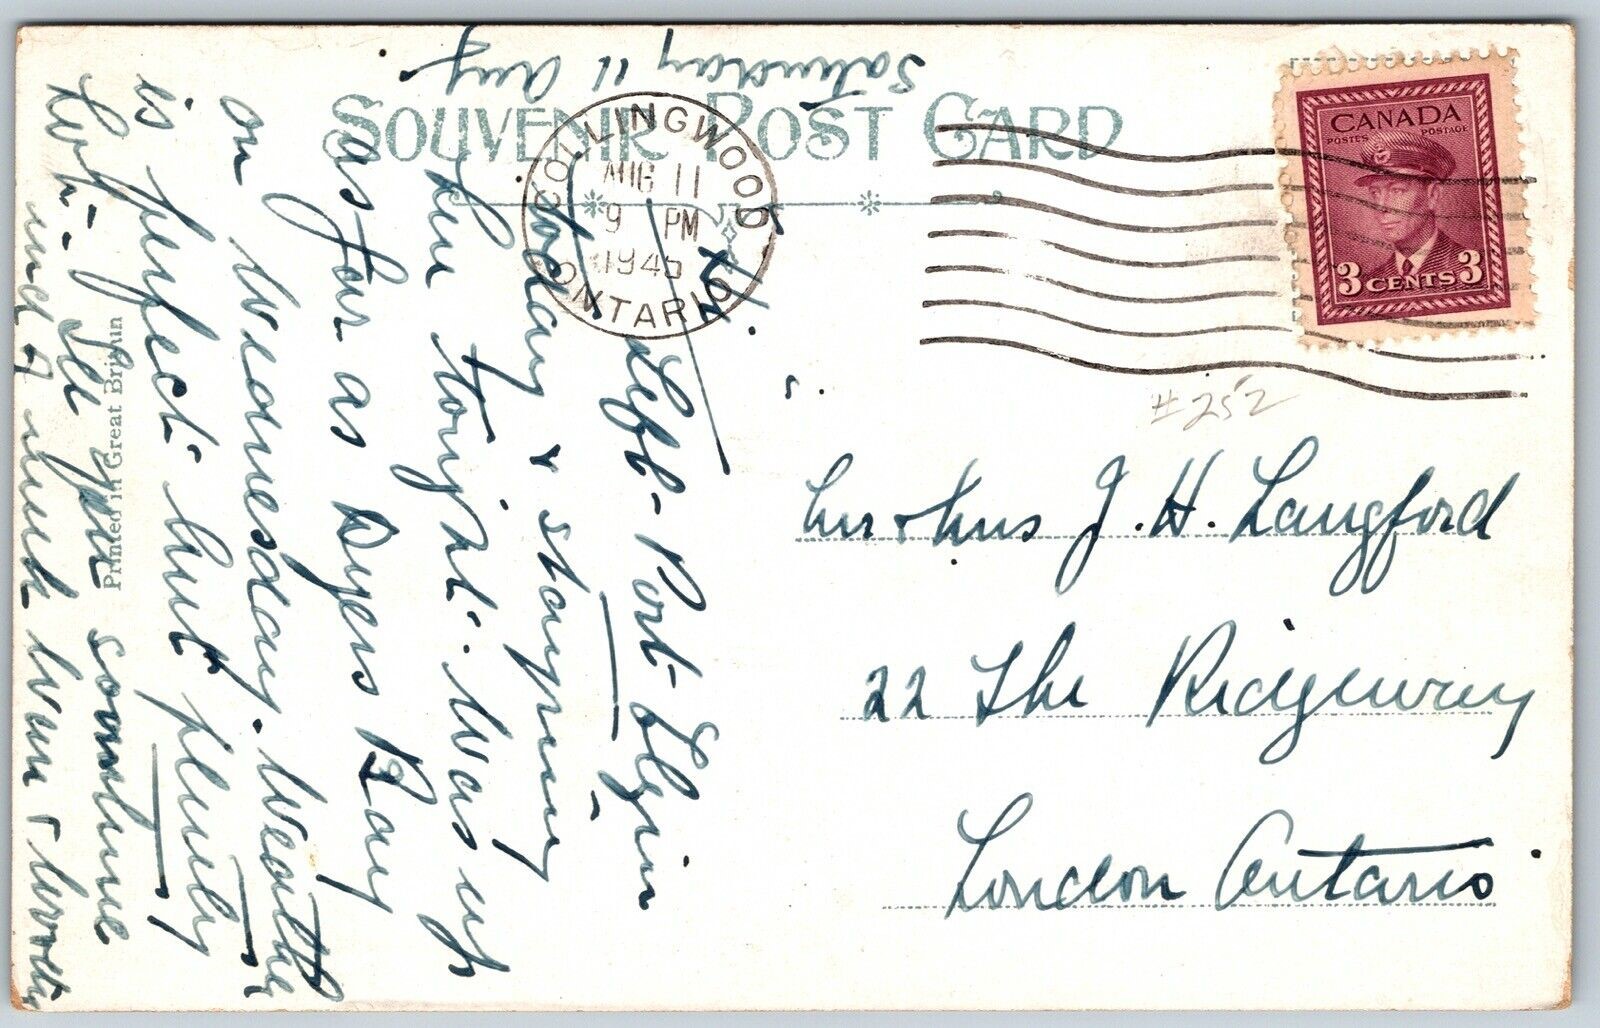 SOUVENIR POST CARD
COLLINGWOOD
AUG 11
9 PM
1945
ONTARIO
CANADA
POSTES POSTAGE
3 CENTS 3
#252
Saturday 11 Aug.
Left Port Elgin
today & staying
here tonight. Was up
as far as Dyers Bay
on Wednesday. Weather
is perfect but plenty
hot. See you sometime
end of next week &
Printed in Great Britain
J. H. Langford
22 The Ridgeway
London Ontario